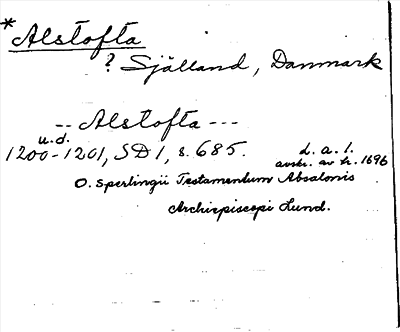 * Alstofta
? Själland, Danmark
-- Alstofta ---
u.d.
1200-1201, SD 1, s. 685. d. a. 1.
avskr. av kr. 1696
O. Sperlingii Testamentum Absalonis
Archiepiscopi Lund.